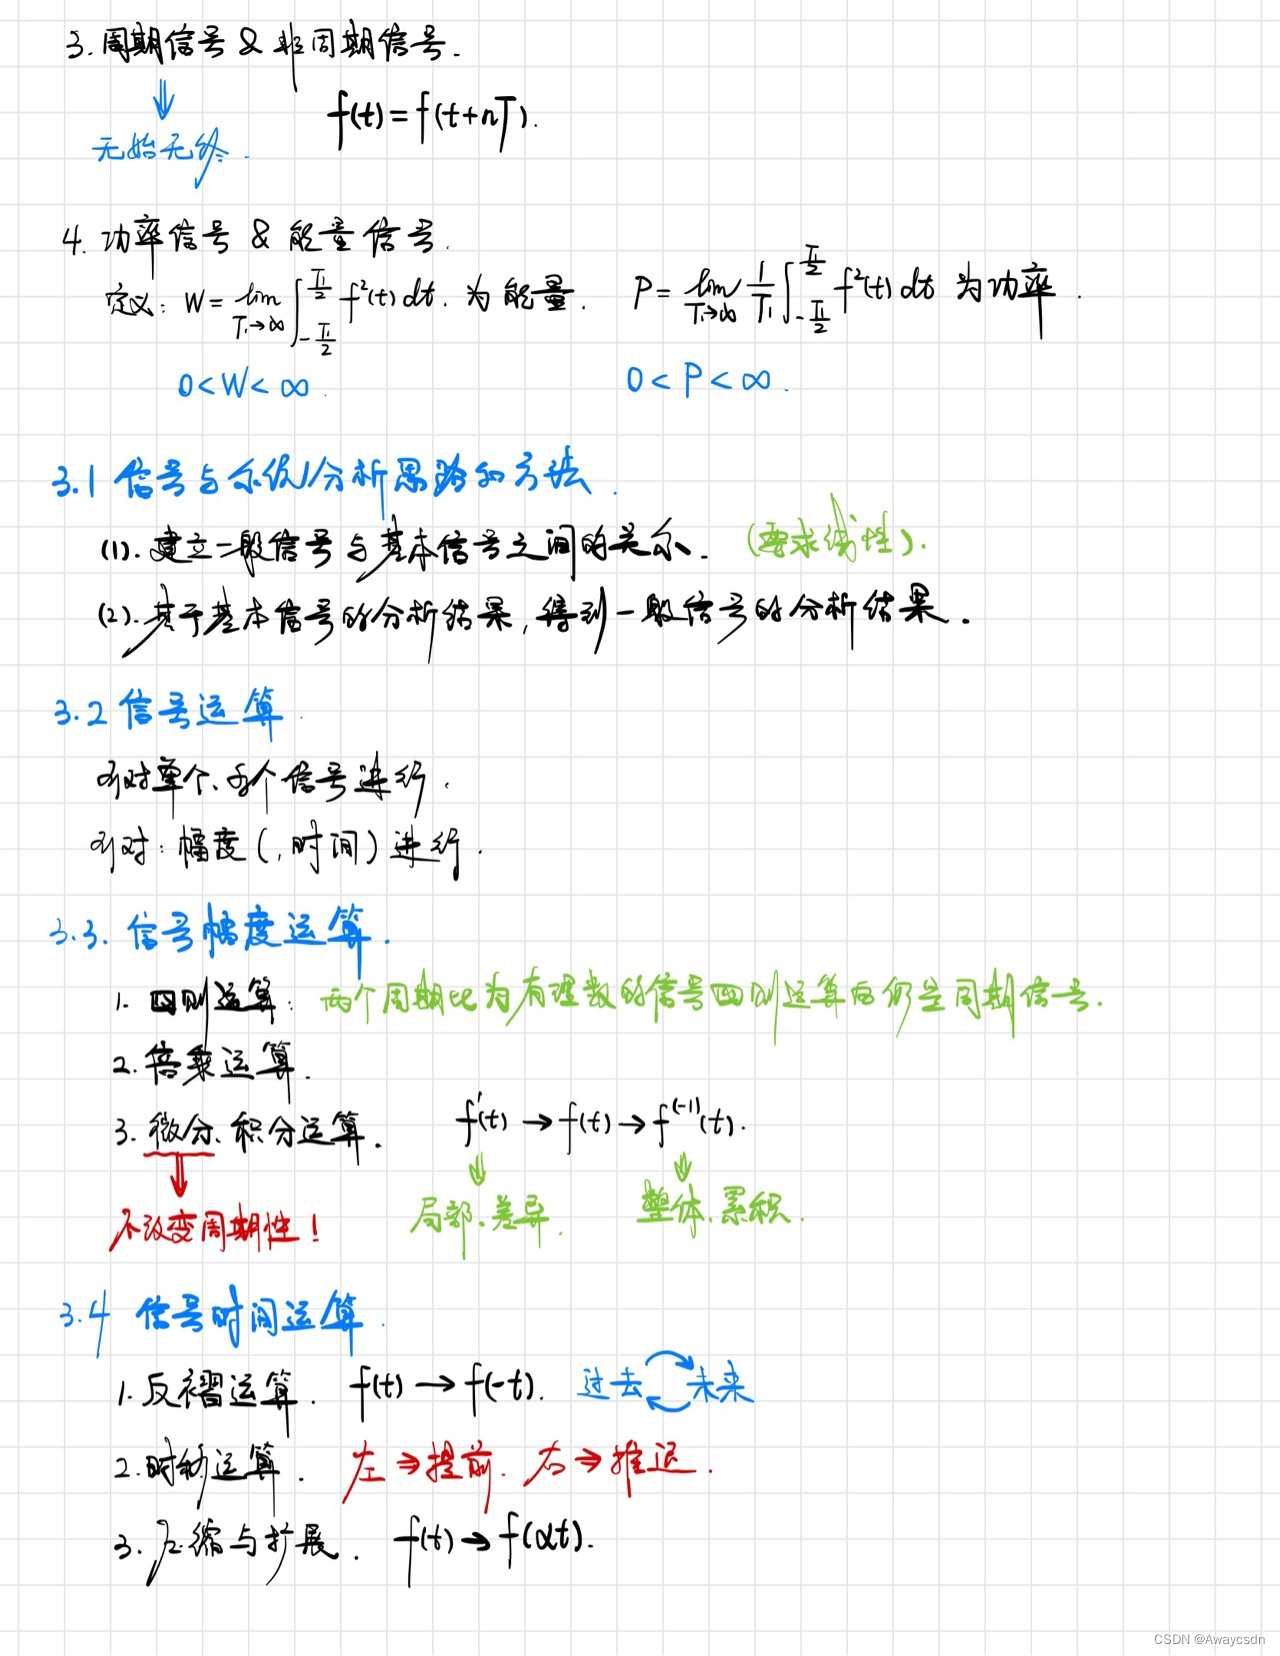 3. 周期信号 & 非周期信号.
⇓
f(t) = f(t+nT).
无始无终.
4. 功率信号 & 能量信号.
定义: W = lim_{T₁→∞} ∫_{-T₁/2}^{T₁/2} f²(t) dt. 为能量. P = lim_{T₁→∞} 1/T₁ ∫_{-T₁/2}^{T₁/2} f²(t) dt 为功率.
0 < W < ∞. 0 < P < ∞.
3.1 信号与系统分析思路和方法.
(1). 建立一般信号与基本信号之间的关系. (要求线性).
(2). 基于基本信号的分析结果, 得到一般信号的分析结果.
3.2 信号运算.
可对单个、多个信号进行.
可对: 幅度(, 时间) 进行.
3.3. 信号幅度运算.
1. 四则运算: 两个周期比为有理数的信号四则运算后仍是周期信号.
2. 倍乘运算.
3. 微分、积分运算. f'(t) → f(t) → f⁽⁻¹⁾(t).
⇓ ⇓ ⇓
不改变周期性! 局部、差异. 整体、累积.
3.4 信号时间运算.
1. 反褶运算. f(t) → f(-t). 过去 未来
2. 时移运算. 左 ⇒ 提前. 右 ⇒ 推迟.
3. 压缩与扩展. f(t) → f(αt).
CSDN @Awaycsdn